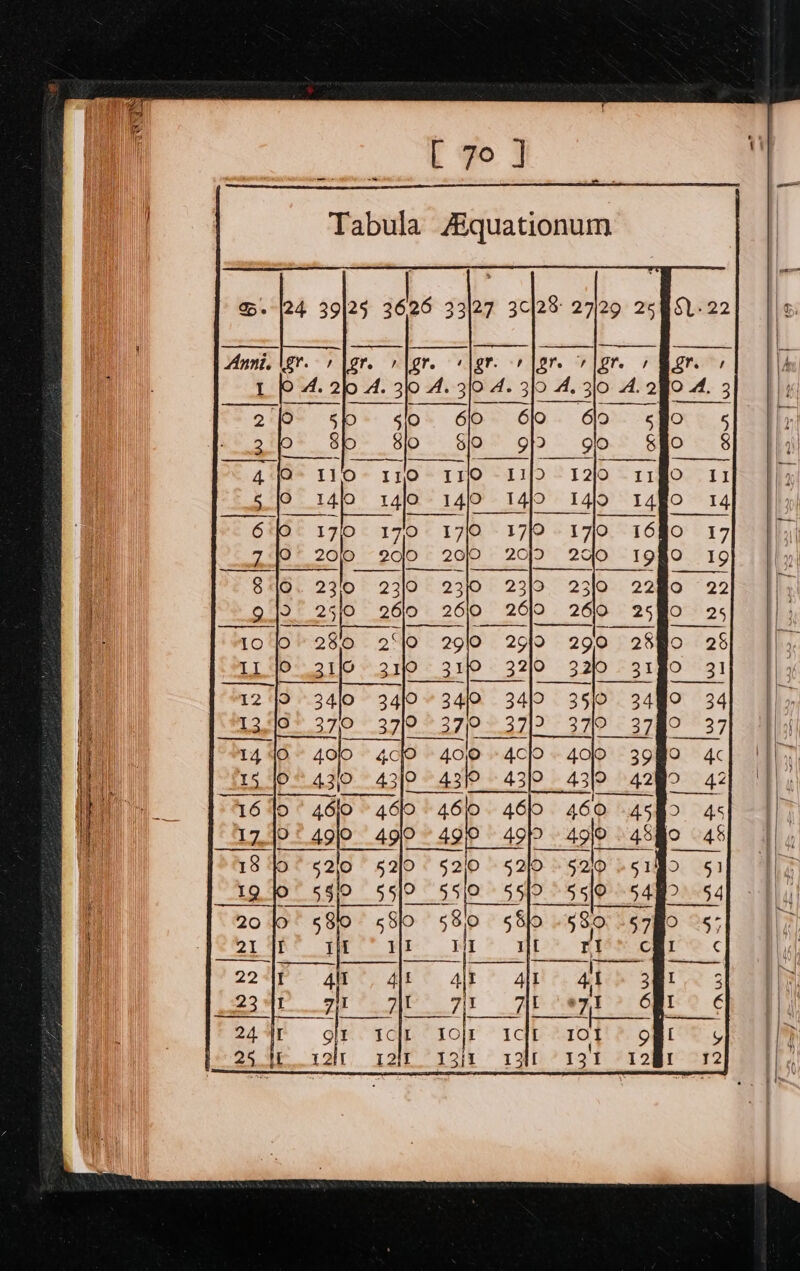 [ 70 ]
Tabula Æquationum
♋. 24 39 25 36 26 33 27 30 28 27 29 25 ♌. 22
Anni. gr. ′ gr. ′ gr. ′ gr. ′ gr. ′ gr. ′ gr. ′
1 0 A. 2 0 A. 3 0 A. 3 0 A. 3 0 A. 3 0 A. 2 0 A. 3
2 0 5 0 5 0 6 0 6 0 6 0 5 0 5
3 0 8 0 8 0 8 0 9 0 9 0 8 0 8
4 0 11 0 11 0 11 0 11 0 12 0 11 0 11
5 0 14 0 14 0 14 0 14 0 14 0 14 0 14
6 0 17 0 17 0 17 0 17 0 17 0 16 0 17
7 0 20 0 20 0 20 0 20 0 20 0 19 0 19
8 0 23 0 23 0 23 0 23 0 23 0 22 0 22
9 0 25 0 26 0 26 0 26 0 26 0 25 0 25
10 0 28 0 2 0 29 0 29 0 29 0 28 0 28
11 0 31 0 31 0 31 0 32 0 32 0 31 0 31
12 0 34 0 34 0 34 0 34 0 35 0 34 0 34
13 0 37 0 37 0 37 0 37 0 37 0 37 0 37
14 0 40 0 40 0 40 0 40 0 40 0 39 0 40
15 0 43 0 43 0 43 0 43 0 43 0 42 0 42
16 0 46 0 46 0 46 0 46 0 46 0 45 0 45
17 0 49 0 49 0 49 0 49 0 49 0 48 0 48
18 0 52 0 52 0 52 0 52 0 52 0 51 0 51
19 0 55 0 55 0 55 0 55 0 55 0 54 0 54
20 0 58 0 58 0 58 0 58 0 58 0 57 0 57
21 1 1 1 1 1 1 1 1 1 1 1 0 1 0
22 1 4 1 4 1 4 1 4 1 4 1 3 1 3
23 1 7 1 7 1 7 1 7 1 7 1 6 1 6
24 1 9 1 10 1 10 1 10 1 10 1 9 1 9
25 1 12 1 12 1 13 1 13 1 13 1 12 1 12